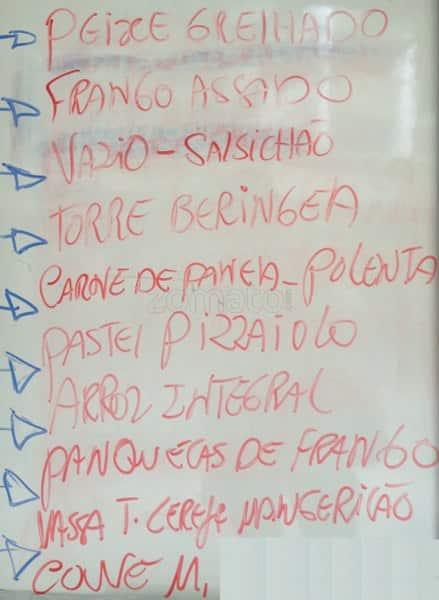 PEIXE GRELHADO
FRANGO ASSADO
VAZIO - SALSICHÃO
TORRE BERINGEA
CARNE DE PANELA - POLENTA
zomato
PASTEL PIZZAIOLO
ARROZ INTEGRAL
PANQUECAS DE FRANGO
MASSA T. CEREJA MANGERICÃO
COUVE M,